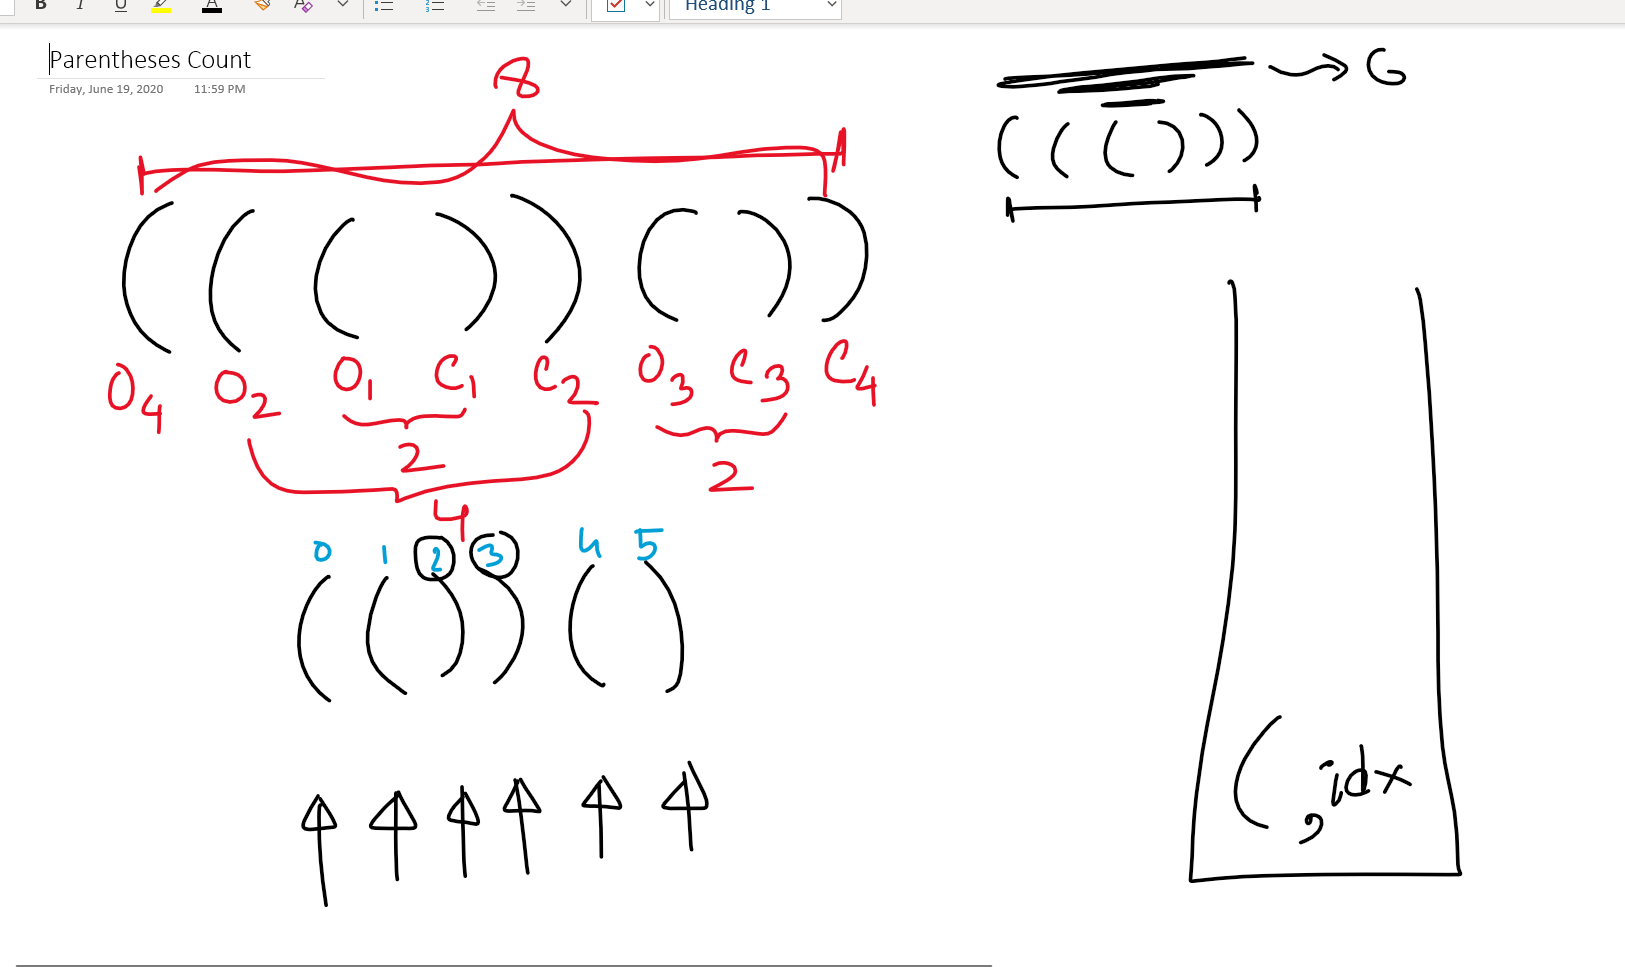 B I U A A Heading 1
Parentheses Count
Friday, June 19, 2020 11:59 PM
8
→ G
( ( ( ) ) )
( ( ( ) ) ( ) )
O4 O2 O1 C1 C2 O3 C3 C4
2
2
4
0 1 2 3 4 5
( ( ) ) ( )
( , idx